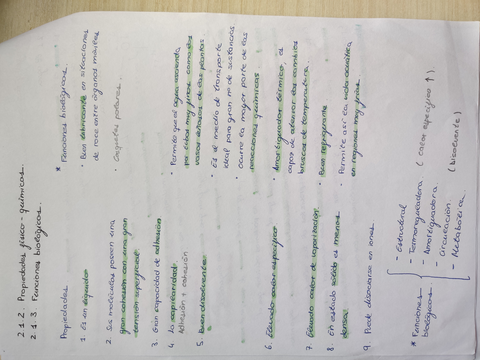 2.1.2. Propiedades físico-químicas.
2.1.3 Funciones biológicas.
Propiedades
1. Es un líquido
2. Sus moléculas poseen una
gran cohesión con una gran
tensión superficial
3. Gran capacidad de adhesión
4. La capilaridad.
Adhesión + cohesión
5. Buen disolvente
6. Elevado calor específico
7. Elevado calor de vaporización
8. En estado sólido es menos
denso
9. Puede disociarse en iones.
* Funciones biológicas.
· Buen lubricante en situaciones
de roce entre órganos móviles
· Coquetes polares.
· Permite que el agua ascienda
por tubos muy finos como los
vasos leñosos de las plantas
· Es el medio de transporte
ideal para gran nº de sustancias
· Ocurre la mayor parte de las
reacciones químicas
· Amortiguador térmico, es
capaz de atenuar los cambios
bruscos de temperatura.
· Buen refrigerante
· Permite así la vida acuática
en regiones muy frías.
* Funciones
biológicas
- Estructural
- Termorreguladora (calor específico ↑)
- Amortiguadora
- Circulación
- Metabólica. (disolvente)